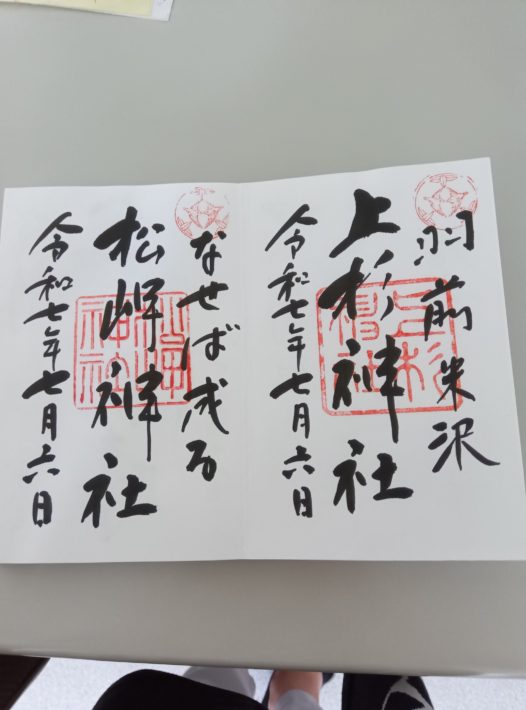 羽前米沢
上杉神社
令和七年七月六日
なせば成る
松岬神社
令和七年七月六日